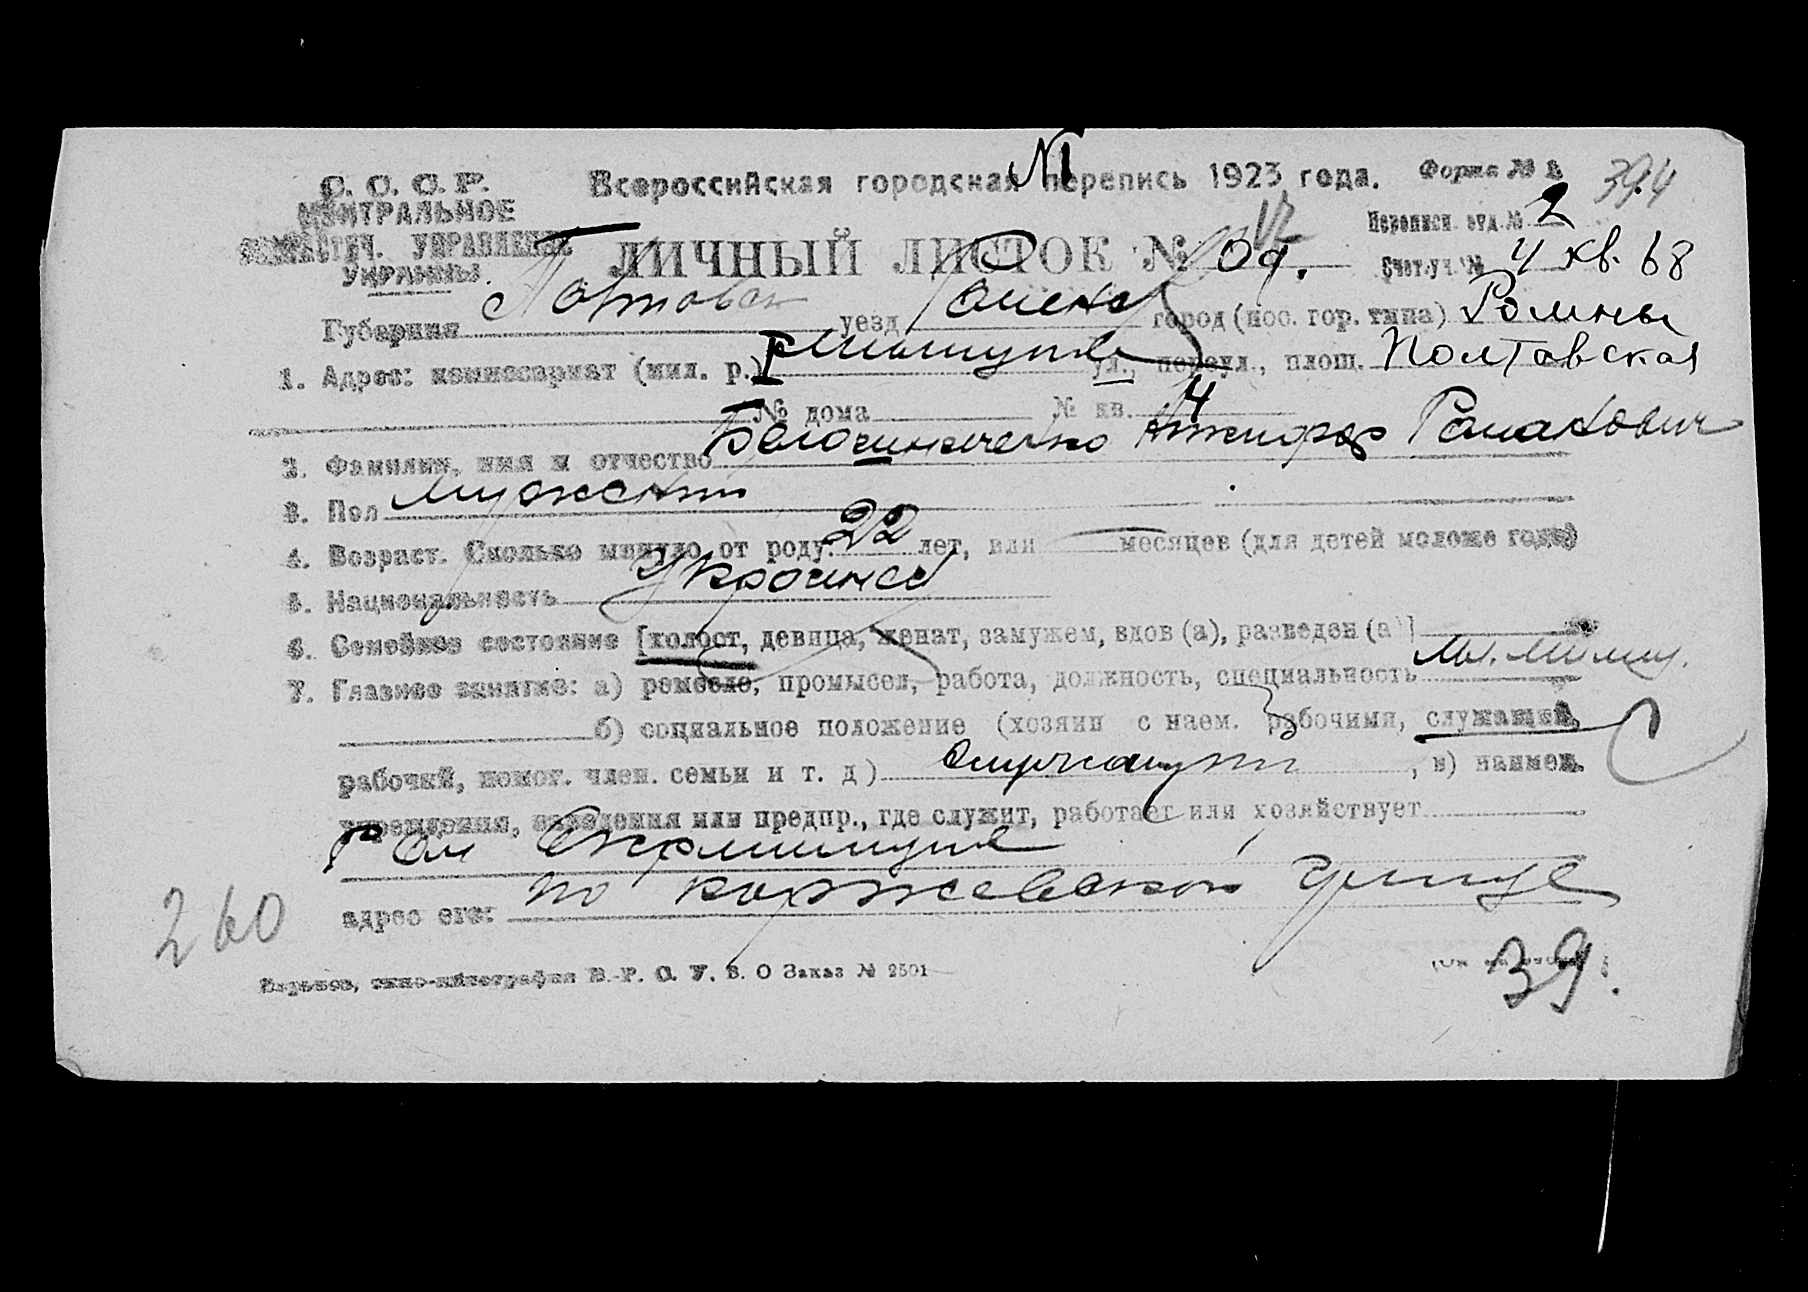 № 1
С. С. С. Р. Всероссийская городская перепись 1923 года. Форма № 394
ЦЕНТРАЛЬНОЕ Переписн. отд. № 2
СТАТИСТИЧ. УПРАВЛЕНИЕ ЛИЧНЫЙ ЛИСТОК № 09. Счетн. уч. № 4 кв. 68
УКРАИНЫ.
Губерния Полтавск уезд Роменск город (пос. гор. типа) Ромны
1. Адрес: комиссариат (мил. р.) I ул., переул., площ. Полтавская
№ дома № кв. 4
2. Фамилия, имя и отчество Никифор Романович
3. Пол мужской
4. Возраст. Сколько минуло от роду: 22 лет, или — месяцев (для детей моложе года)
5. Национальность Украинец
6. Семейное состояние [холост, девица, женат, замужем, вдов (а), разведен (а)]
7. Главное занятие: а) ремесло, промысел, работа, должность, специальность Мл. милиц.
б) социальное положение (хозяин с наем. рабочими, служащий,
рабочий, помог. член. семьи и т. д) служащий, в) наимен.
учреждения, заведения или предпр., где служит, работает или хозяйствует
Ром
адрес его: по Коржевской улице
260
39.
Харьков, типо-литография В. У. В. О Заказ № 2501